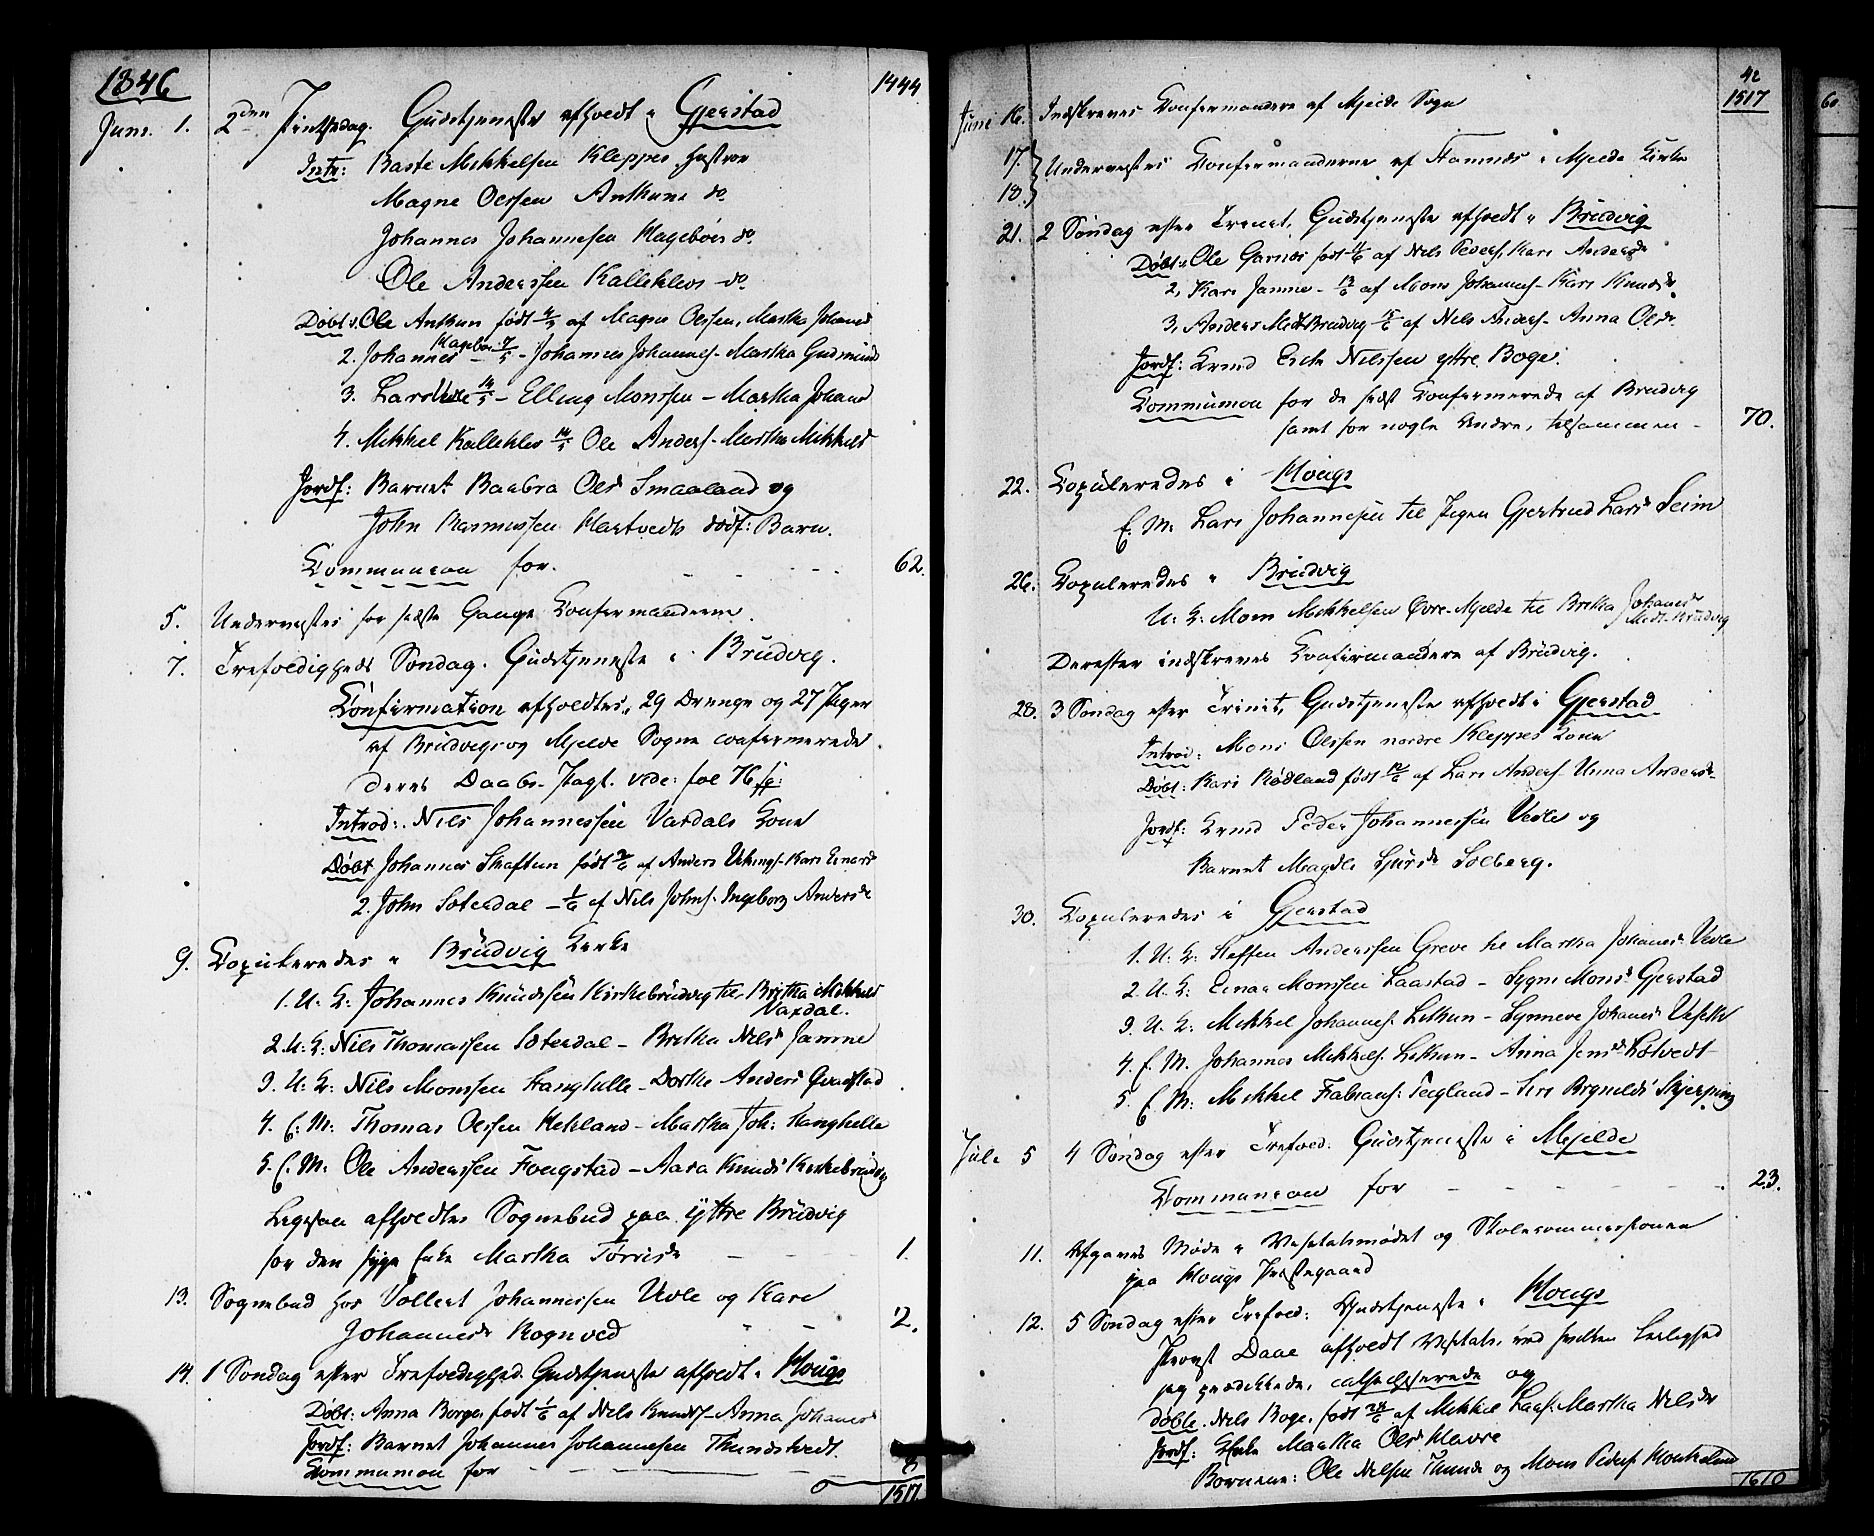 1846
1444
Juni 1. 2den Pintsedag. Gudstjeneste afholdt i Gjerstad
Intr: Baste Mikkelsen Kleppes Hustroe
Magne Olssen Anthuns do
Johannes Johannessen Hagebøes do
Ole Anderssen Kalleklevs do
Døbt 1. Ole Anthun født af Magne Olssen, Martha Johansd
2. Johannes Hagebøe 7/5 - Johannes Johannes. - Martha Gudmunds
3. Lars 14/5 - Elling Monssen - Martha Johansd
4. Mikkel Kalleklev 14/5 Ole Anders. Martha Mikkelsd
Jordf: Barnet Baabra Olsd Smaaland og
John Rasmussen Hartvedts dødf: Barn.
Communion for. - - - - 62.
5. Undervistes for sidste Gange Confirmanderne.
7. Trefoldigheds Søndag. Gudstjeneste i Brudvig.
Confirmation afholdtes, 29 Drenge og 27 Piger
af Brudvigs og Mjelde Sogne confirmerede
deres Daabs-Pagt. vide: fol 76 ff:
Introd: Nils Johannessen Vaxdals Kone
Døbt Johannes Skaftun født af Anders Vikings. Kari Einarsd
2. John Soterdal - 1/6 af Nils Johns. Ingeborg Andersdr
9. Copuleredes i Brudvig Kirke
1. U. K: Johannes Knudssen Kirkebrudvig til Brytha Mikkelsd Vaxdal.
2. U: K: Nils Thomassen Soterdal - Britha Nilsd Jamne
3. U: K: Nils Monssen Langhelle - Dorthe Andersd
4. E: M: Thomas Olssen Hekland - Martha Joh: Langhelle
5. E. M: Ole Anderssen Fougstad - Aasa Knudsd Kirkebrudvig
Ligesaa afholdtes Sognebud paa yttre Brudvig
for den syge Enke Martha Torrisdr - - - 1.
13. Sognebud hos Vollert Johannessen Vevle og Kari
Johannesdr Rognved - - 2.
14. 1 Søndag efter Trefoldighed Gudstjeneste afholdt i Hougs
Døbt: Anna Borge, født 1/6 af Nils Knuds. - Anna Johannesd
Jordf: Barnet Johannes Johannessen Thunestvedt.
Communion for - - - 8
1517
42
1517
Juni 16. Indskreves Confirmandere af Mjelde Sogn
17. 18. Undervistes Confirmanderne af Stamnes i Mjelde Kirke
21. 2 Søndag efter Trinit. Gudstjeneste afholdt i Brudvig
Døbt: Ole Garnes født af Nils Peders, Kari Andersdr
2, Kari Jamne - af Mons Johannes. Kari Knudsdr
3, Anders Midt Brudvig 15/6 af Nils Anders. Anna Olsdr.
Jordf: Ermd Erik Nilssen yttre Boge.
Communion for de sidst Confirmerede af Brudvig
samt for nogle Andre, tilsammen - 70.
22. Copuleredes i Hougs
E. M: Lars Johannessen til Pigen Gjertrud Larsd Seim
26. Copuleredes i Brudvig
U: K: Mons Mikkelsen Øvre-Mjelde til Britha Johansdr Midt-Brudvig
Derefter indskreves Confirmandere af Brudvig.
28. 3 Søndag efter Trinit, Gudstjeneste afholdt i Gjerstad
Introd: Mons Olssen nordre Kleppes Kone
Døbt: Kari Rødland født 12/6 af Lars Anders. Anna Andersdr
Jordf: Ermd Peder Johannessen Vevle og
Barnet Magdli Sjursdr Solberg.
30. Copuleredes i Gjerstad
1. U: K: Steffen Anderssen Greve til Martha Johannesd Vevle
2. U. K: Einar Monssen Laastad - Sygni Monsd Gjerstad
3. U. K: Mikkel Johannes. Lekun - Synneve Johannesd
4. E. M. Johannes Mikkels. Lekun - Anna Jensd
5. E. M: Mikkel Fabians: Tegland - Siri Brynildsd Skjerping
Juli 5 4 Søndag efter Trefold: Gudstjeneste i Mjelde
Communion for - - - - - 23.
11. Afgaves Møde i Visitatsmødet og Skolecommissionen
paa Hougs Prestegaard
12. 5 Søndag efter Trefold: Gudstjeneste i Hougs
Provst Daae afholdt Visitats, ved hvilken Leilighed
jeg prædikede, catechiserede og
døbte. Nils Boge, født 28/6 af Mikkel Lars. Martha Nilsdr
Jordf: Enke Martha Olsd Havre
Børnene: Ole Nilsen Thunes og Mons Peders.
1610